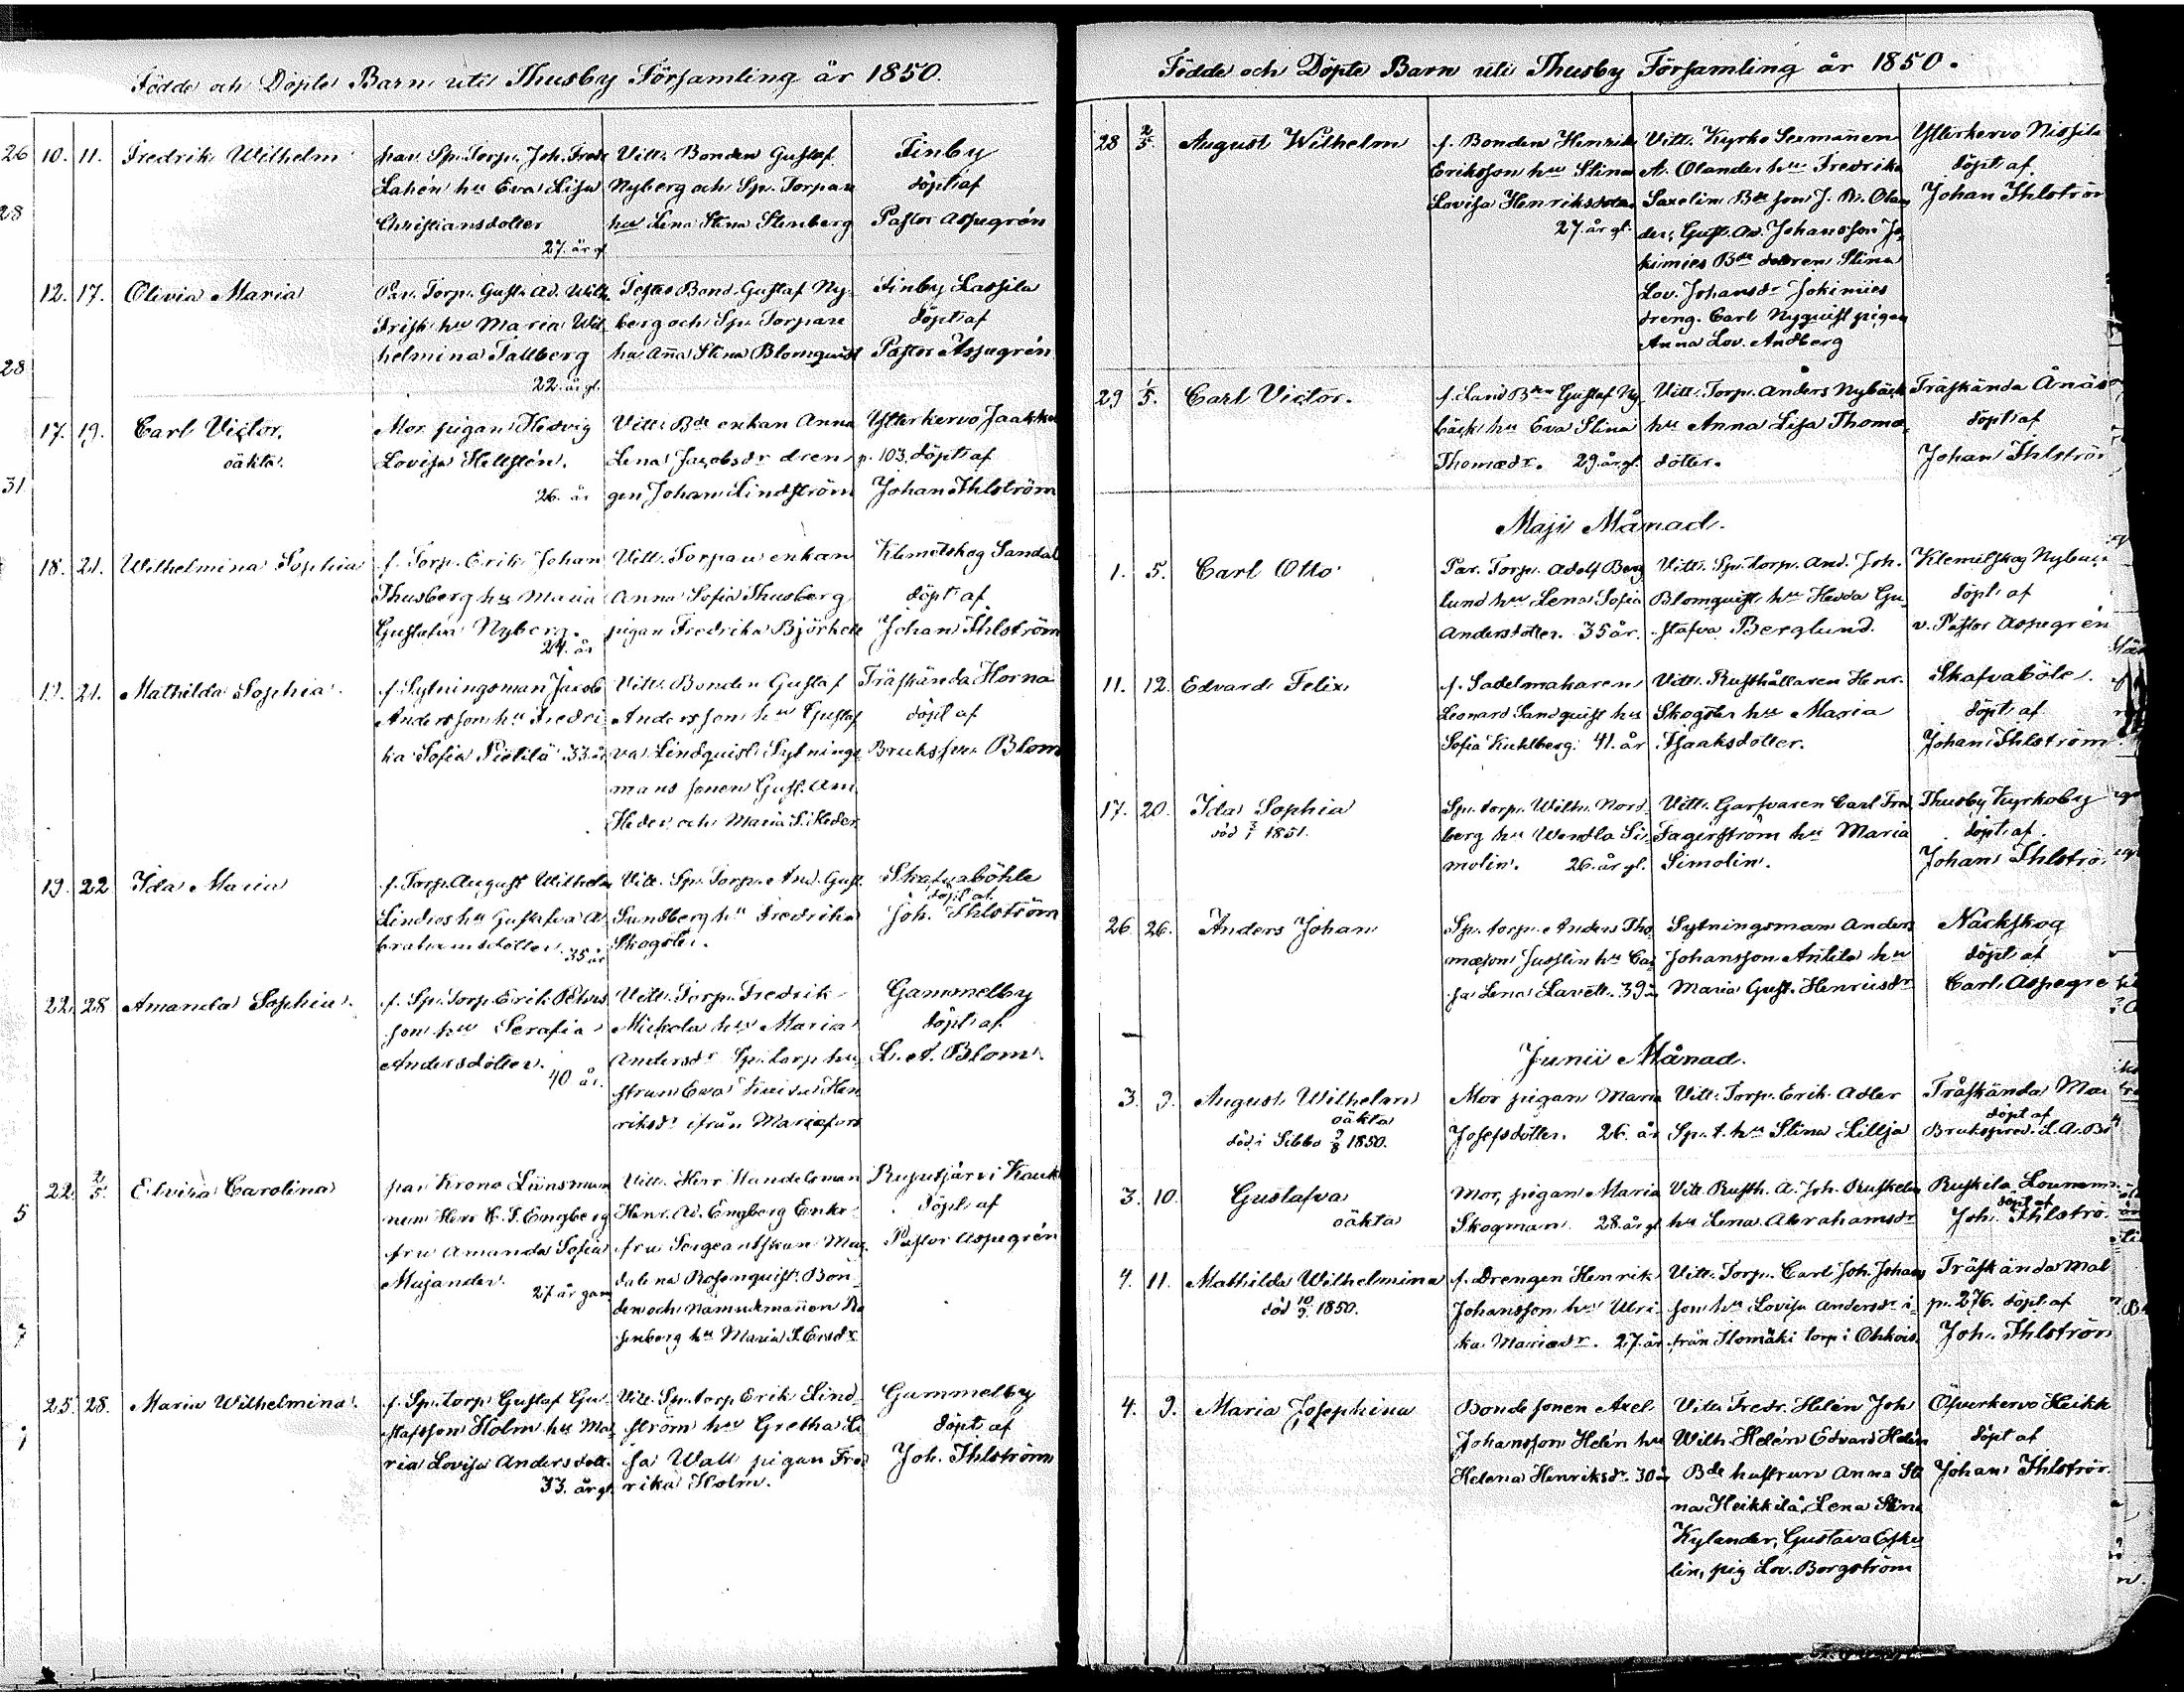 Födde och Döpte Barn uti Thusby Församling år 1850.
26 10. 11. Fredrik Wilhelm
par. Sp. Torp. Joh. Fredr
Lahén hu Eva Lisa
Christiansdotter
27. år gl
Vitt. Bonden Gustaf
Nyberg och Sp. Torpare
hu Lena Stina Stenberg
Finby
döpt af
Pastor Aspegrén
28
12. 17. Olivia Maria
Par. Torp. Gust. Ad. Wilh.
Frisk hu Maria Wil
helmina Tallberg
22. år gl.
Testes Bond. Gustaf Ny-
berg och Sp. Torpare
hu Anna Stina Blomquist
Finby Lassila
döpt af
Pastor Aspegrén
28
17. 19. Carl Victor.
oäkta.
Mor pigan Hedvig
Lovisa Hellstén.
26. år
Vitt. Bde enkan Anna
Lena Jacobsdr dren
gen Johan Lindström
Ytterkervo Jaakko
p. 103. döpt af
Johan Ihlström
31
18. 21. Wilhelmina Sophia
f. Torp. Erik Johan
Thusberg hu Maria
Gustafva Nyberg.
24. år
Vitt. Torpare enkan
Anna Sofia Thusberg
pigan Fredrika Björkell
Klemetskog Sandal
döpt af
Johan Ihlström
19. 21. Mathilda Sophia.
f. Sytningsman Jacob
Andersson hu Fredri
ka Sofia Pietilä 33 år
Vitt. Bonden Gustaf
Andersson hu Gustaf
va Lindquist Sytnings
mans sonen Gust. Am.
Heder och Maria S. Heder
Träskända Horna
döpt af
Bruksprer. Blom
19. 22 Ida Maria
f. Torp. August Wilhelm
Lindros hu Gustafva A
brahamsdotter. 35 år
Vitt. Sp. Torp. And. Gust.
Sundberg hu Fredrika
Skogster.
Skafvaböhle
döpt af
Joh. Ihlström
22. 28 Amanda Sophia.
f. Sp. Torp. Erik Peters
son hu Serafia
Andersdotter.
40 år.
Vitt. Torp. Fredrik
Mickola hu Maria
Andersdr Sp. torp hu
strun Eva Kaisa Hen
riksdr ifrån Mariefors
Gammelby
döpt af
L. A. Blom.
5 22. 2/5. Elvira Carolina
par Krono Länsman
nen Herr K. S. Engberg
fru Amanda Sofia
Mujander.
27 år gam
Vitt. Herr Handelsman
Henr. Ad. Engberg Enke-
fru Sergeantskan Mag
dalena Rosenquist. Bon
den och Nämndemannen Ro
senberg hu Maria L. Ersdr
Ruputjärvi Kauk
döpt af
Pastor Aspegrén
7
25. 28. Maria Wilhelmina.
f. Sp. torp Gustaf Gu-
stafsson Holm hu Ma
ria Lovisa Andersdott.
33. år gl
Vitt. Sp. torp. Erik Lind-
ström hu Gretha Li
sa Wall pigan Fred
rika Holm.
Gammelby
döpt af
Joh. Ihlström
Födde och Döpte Barn uti Thusby Församling år 1850.
28 2/5 August Wilhelm
f. Bonden Henrik
Eriksson hu Stina
Lovisa Henriksdotter
27. år gl.
Vitt. Kyrko Sexmannen
A. Olander hu Fredrika
Saxelin Bde son J. R. Olan
der, Gust. Ad. Johansson Jo
kimies Bde dottren Stina
Lov. Johansdr Jokimies
dreng. Carl Nyquist pigan
Anna Lov. Andberg
Ytterkervo Nissila
döpt af
Johan Ihlström
29 1/5. Carl Victor.
f. Land Bden Gustaf Ny
bäck hu Eva Stina
Thomædr. 29. år gl.
Vitt. Torp. Anders Nybäck
hu Anna Lisa Thomæ
dotter.
Träskända Ånäs
döpt af
Johan Ihlström
Maji Månad.
1. 5. Carl Otto
Par. Torp. Adolf Berg
lund hu Lena Sofia
Andersdotter. 35 år.
Vitt. Sp. torp. And. Joh.
Blomquist hu Hedda Gu
stafva Berglund.
Klemetskog
döpt af
v. Pastor Aspegrén
11. 12. Edvard Felix
f. Sadelmakaren
Leonard Sandquist hu
Sofia Kuhlberg. 41. år
Vitt. Rusthållaren Henr.
Skogster hu Maria
Isaaksdotter.
Skafvaböle.
döpt af
Johan Ihlström
17. 20. Ida Sophia
död 3/1 1851.
Sp. torp. Wilh. Nord
berg hu Wendla Si-
molin. 26. år gl.
Vitt. Garfvaren Carl Fred
Fagerström hu Maria
Simolin.
Thusby Kyrkoby
döpt af
Johan Ihlströ
26. 26. Anders Johan
Sp. torp. Anders Tho
mæson Jusslin hu Cai
sa Lena Lavett. 39 år
Sytningsman Anders
Johansson Anttila hu
Maria Gust. Henricsdr
Näckskog
döpt af
Carl Aspegre
Junii Månad.
3. 9. August Wilhelm
oäkta
död i Sibbo 9/8 1850.
Mor pigan Maria
Josefsdotter. 26. år
Vitt. Torp. Erik Adler
Sp. t. hu Stina Lillja
Träskända Ma
döpt af
Brukspred. L. A. Bl
3. 10. Gustafva
oäkta
Mor, pigan Maria
Skogman 28. år gl
Vitt. Rusth. A. Joh. Ruskela
hu Lena Abrahamsdr
Ruskila
döpt af
Joh. Ihlströ
4. 11. Mathilda Wilhelmina
död 10/9. 1850.
f. Drengen Henrik
Johansson hu Ulri-
ka Mariædr. 27. år
Vitt. Torp. Carl Joh. Johans
son hu Lovisa Andersdr i-
från Ilomäki torp i Ohkois
Träskända Mal
p. 276. döpt af
Joh. Ihlström
4. 9. Maria Josephina
Bonde sonen Axel
Johansson Helén hu
Helena Henriksdr. 30 år
Vitt. Fredr. Helén Joh
Wilh. Helén Edvard Helén
Bde hustrun Anna Sti
na Heikkilä, Lena Stina
Kylander, Gustava Esku
lin, pig Lov. Borgström
Öfverkervo Heikk
döpt af
Johan Ihlström